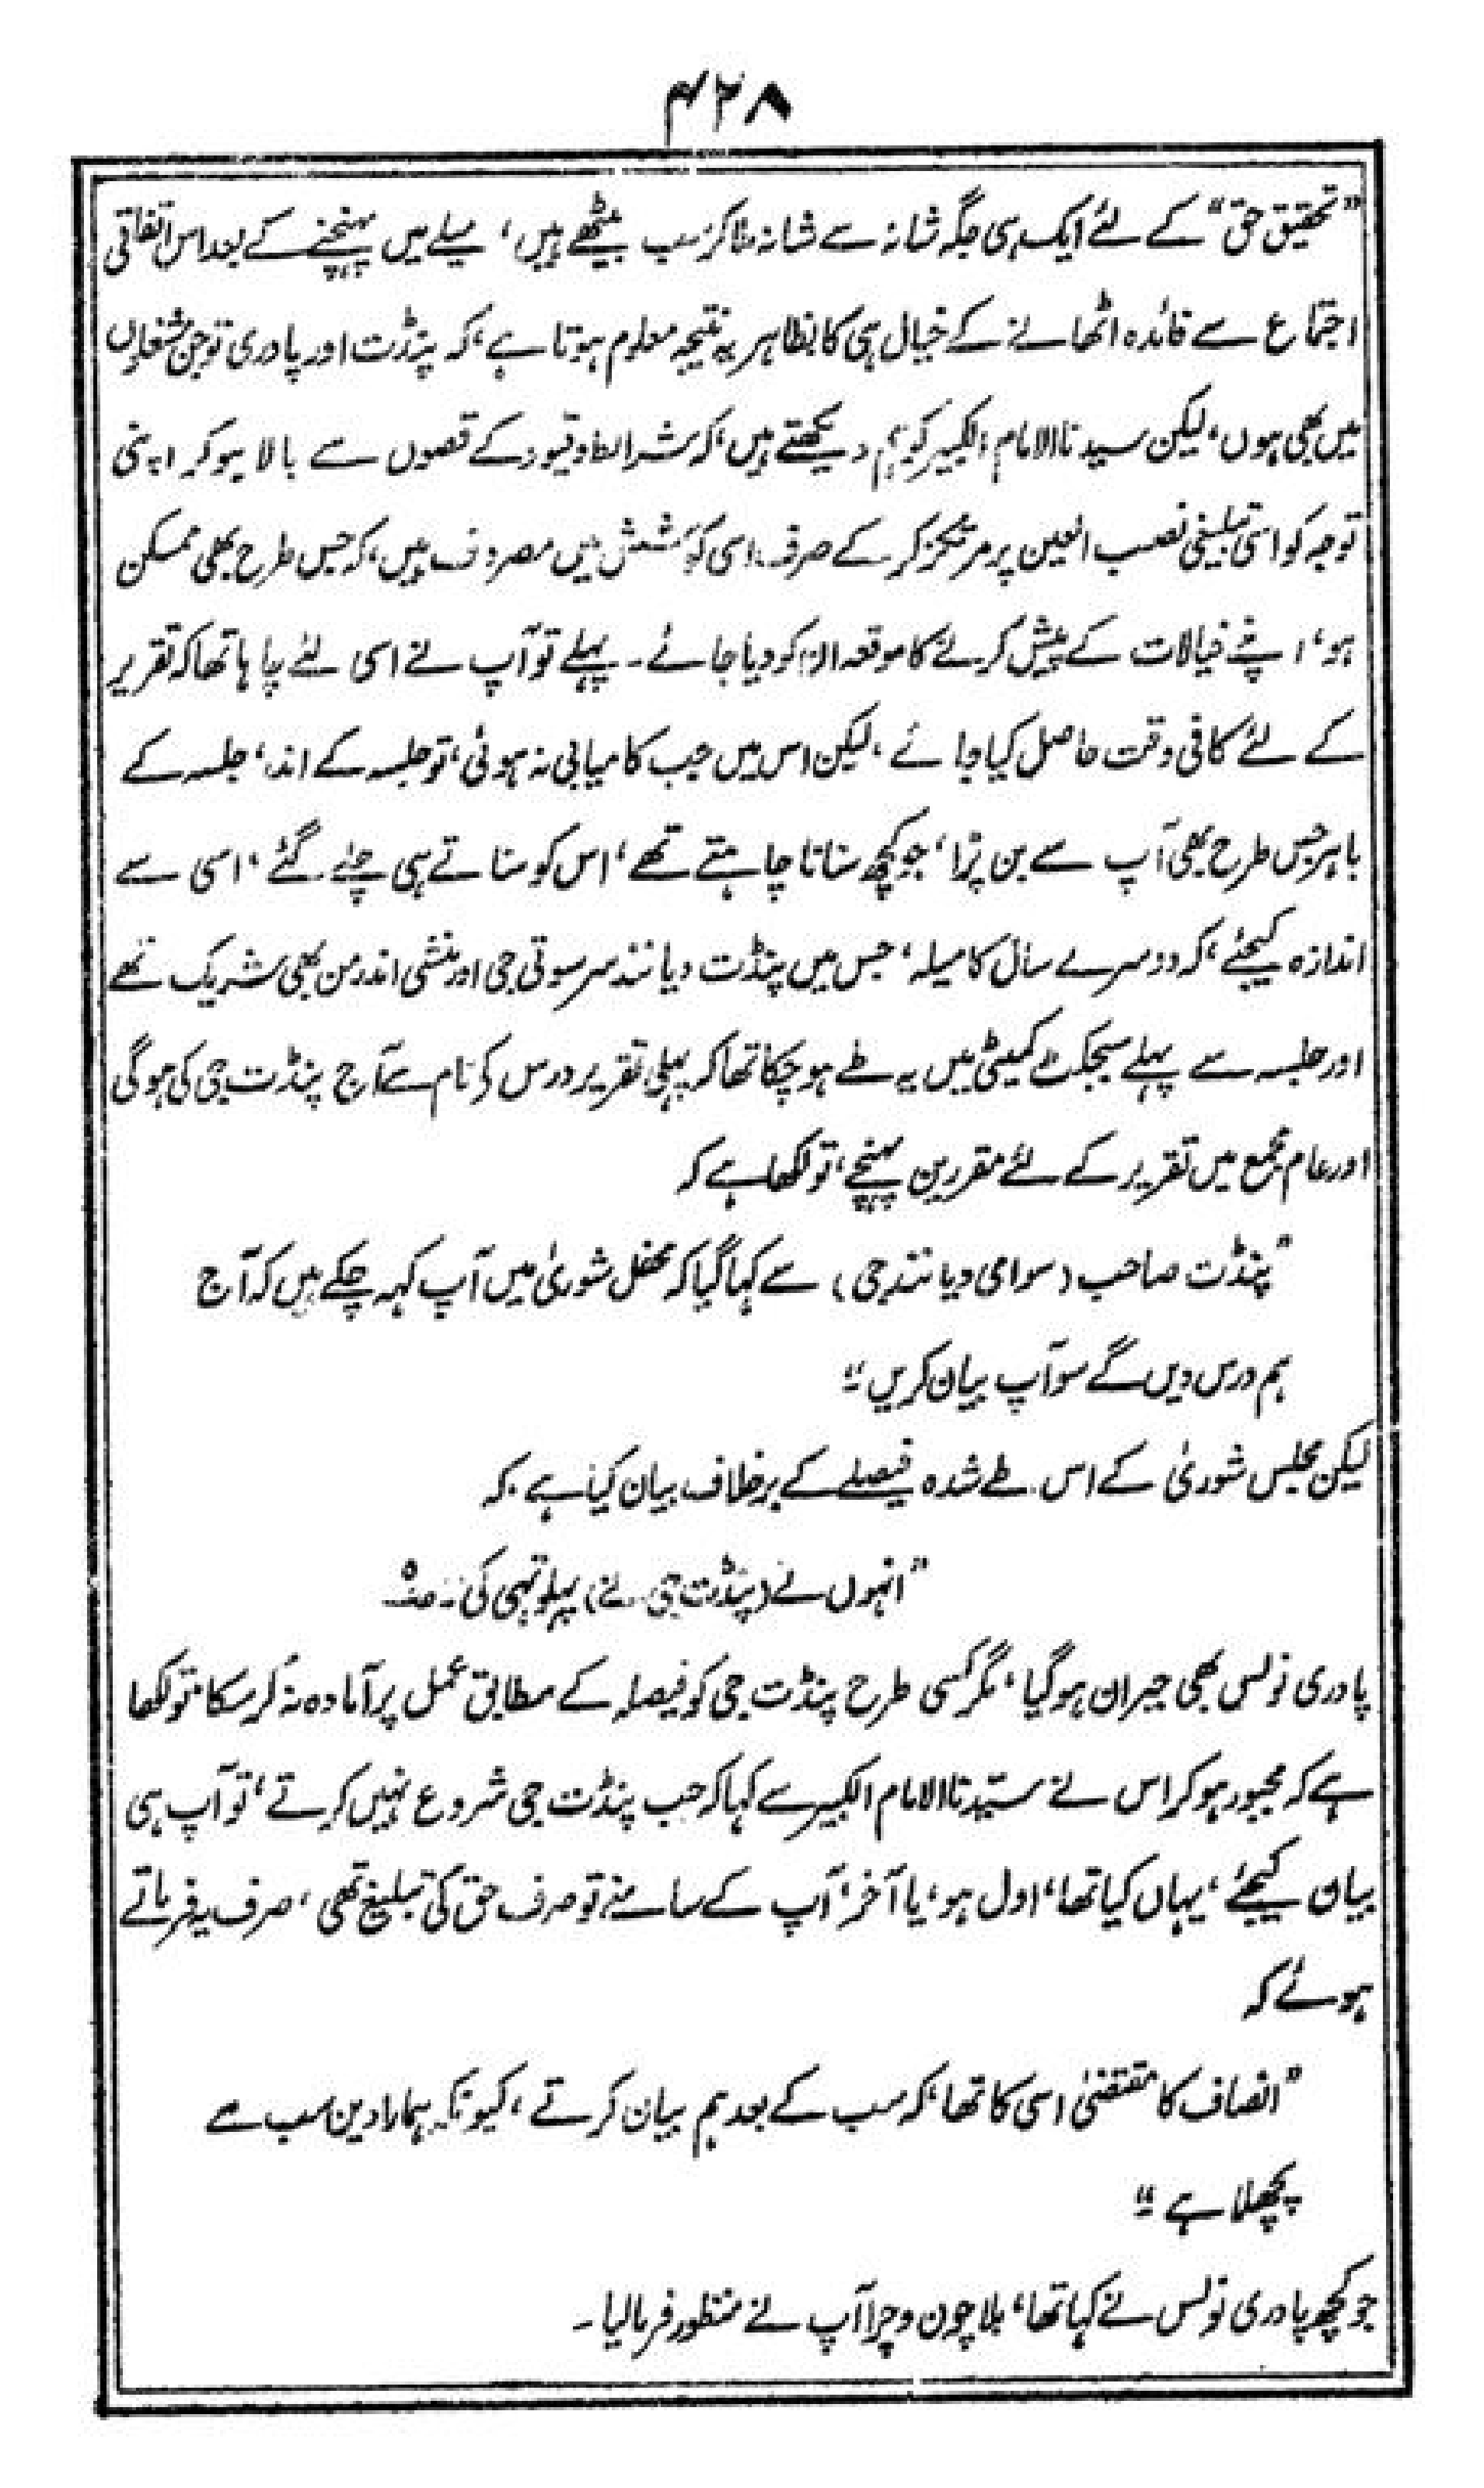 ۴۲۸
"تحقیق حق" کے لئے ایک ہی جگہ شانہ سے شانہ ملا کر سب بیٹھے ہیں، میلے میں پہنچنے کے بعد اس اتفاقی
اجتماع سے فائدہ اٹھانے کے خیال ہی کا بظاہر یہ نتیجہ معلوم ہوتا ہے، کہ پنڈت اور پادری تو جن مشغلوں
میں بھی ہوں، لیکن سیدنا الامام الکبیر کو ہم دیکھتے ہیں، کہ شرائط و قیود کے قصوں سے بالا ہو کر اپنی
توجہ کو اسی تبلیغی نصب العین پر مرتکز کر کے صرف اسی کوشش میں مصروف ہیں، کہ جس طرح بھی ممکن
ہو، اپنے خیالات کے پیش کرنے کا موقعہ ان کو دیا جائے۔ پہلے تو آپ نے اسی لئے چاہا تھا کہ تقریر
کے لئے کافی وقت حاصل کیا جائے، لیکن اس میں جب کامیابی نہ ہوئی، تو جلسہ کے اندر، جلسہ کے
باہر جس طرح بھی آپ سے بن پڑا، جو کچھ سنانا چاہتے تھے، اس کو سناتے ہی چلے گئے، اسی سے
اندازہ کیجئے، کہ دوسرے سال کا میلہ، جس میں پنڈت دیانند سرسوتی جی اور منشی اندرمن بھی شریک تھے
اور جلسہ سے پہلے سبجکٹ کمیٹی میں یہ طے ہو چکا تھا کہ پہلی تقریر درس کے نام سے آج پنڈت جی کی ہوگی
اور عام مجمع میں تقریر کے لئے مقررین پہنچے، تو لکھا ہے کہ
"پنڈت صاحب (سوامی دیانند جی) سے کہا گیا کہ محفل شوریٰ میں آپ کہہ چکے ہیں کہ آج
ہم درس دیں گے سو آپ بیان کریں"
لیکن مجلس شوریٰ کے اس طے شدہ فیصلے کے برخلاف بیان کیا ہے کہ
"انہوں نے (پنڈت جی نے) پہلو تہی کی"
پادری نولس بھی حیران ہو گیا، مگر کسی طرح پنڈت جی کو فیصلہ کے مطابق عمل پر آمادہ نہ کر سکا، تو لکھا
ہے کہ مجبور ہو کر اس نے سیّدنا الامام الکبیر سے کہا کہ جب پنڈت جی شروع نہیں کرتے، تو آپ ہی
بیان کیجئے، یہاں کیا تھا، اول ہو، یا آخر، آپ کے سامنے تو صرف حق کی تبلیغ تھی، صرف یہ فرماتے
ہوئے کہ
"انصاف کا مقتضیٰ اسی کا تھا، کہ سب کے بعد ہم بیان کرتے، کیونکہ ہمارا دین سب سے
پچھلا ہے"
جو کچھ پادری نولس نے کہا تھا، بلا چون و چرا آپ نے منظور فرما لیا۔